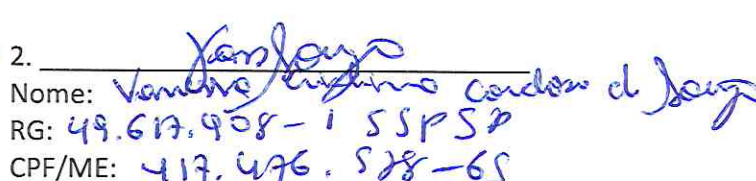 2.
Nome: Vanessa Cardoso d Souza
RG: 49.617.908-1 SSP SP
CPF/ME: 417.476.528-65